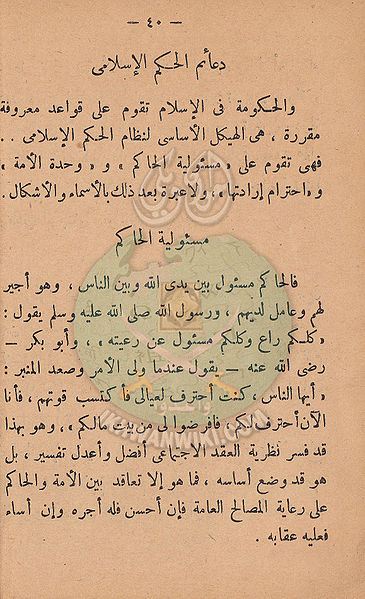 — ٤٠ —
دعائم الحكم الإسلامى
والحكومة فى الإسلام تقوم على قواعد معروفة
مقررة ، هى الهيكل الأساسى لنظام الحكم الإسلامى . .
فهى تقوم على « مسئولية الحاكم » و « وحدة الأمة »
و « احترام إرادتها » ، ولا عبرة بعد ذلك بالأسماء والأشكال .
مسئولية الحاكم
فالحاكم مسئول بين يدى الله وبين الناس ، وهو أجير
لهم وعامل لديهم ، ورسول الله صلى الله عليه وسلم يقول :
« كلكم راع وكلكم مسئول عن رعيته » ، وأبو بكر —
رضى الله عنه — يقول عندما ولى الأمر وصعد المنبر :
« أيها الناس ، كنت أحترف لعيالى فأكتسب قوتهم ، فأنا
الآن أحترف لكم ، فافرضوا لى من بيت مالكم » ، وهو بهذا
قد فسر نظرية العقد الاجتماعى أفضل وأعدل تفسير ، بل
هو قد وضع أساسه ، فما هو إلا تعاقد بين الأمة والحاكم
على رعاية المصالح العامة فإن أحسن فله أجره وإن أساء
فعليه عقابه .
IKHWANWIKI.COM